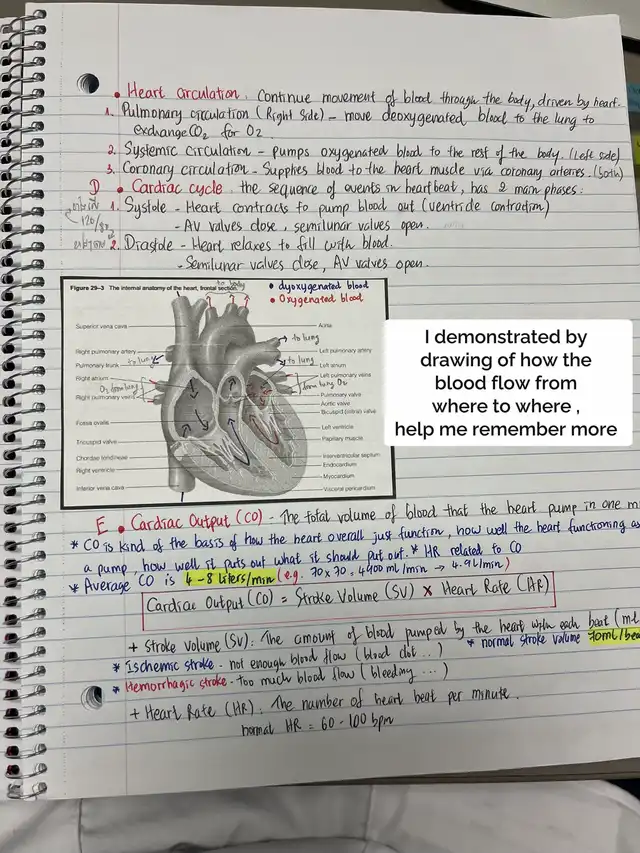 • Heart circulation: Continue movement of blood through the body, driven by heart.
1. Pulmonary circulation (Right Side) - move deoxygenated blood to the lung to
exchange CO2 for O2.
2. Systemic circulation - pumps oxygenated blood to the rest of the body. (Left side)
3. Coronary circulation - Supplies blood to the heart muscle via coronary arteries. (both)
D • Cardiac cycle: the sequence of events in heartbeat, has 2 main phases:
1. Systole - Heart contracts to pump blood out (ventricle contraction)
120/80
- AV valves close, semilunar valves open.
2. Diastole - Heart relaxes to fill with blood.
- Semilunar valves close, AV valves open.
Figure 29-3 The internal anatomy of the heart, frontal section.
to body
• dyoxygenated blood
• Oxygenated blood
Superior vena cava
Aorta
to lung
Right pulmonary artery
Left pulmonary artery
Pulmonary trunk
to lung
to lung
Left atrium
Right atrium
O2 from lung
Left pulmonary veins
from lung O2
Right pulmonary veins
Pulmonary valve
Aortic valve
Bicuspid (mitral) valve
Fossa ovalis
Left ventricle
Tricuspid valve
Papillary muscle
Chordae tendineae
Interventricular septum
Right ventricle
Endocardium
Myocardium
Inferior vena cava
Visceral pericardium
I demonstrated by
drawing of how the
blood flow from
where to where ,
help me remember more
E • Cardiac Output (CO) - The total volume of blood that the heart pump in one m
* CO is kind of the basis of how the heart overall just function, how well the heart functioning as
a pump, how well it puts out what it should put out. * HR related to CO
* Average CO is 4-8 liters/min (e.g. 70 x 70 = 4900 ml/min → 4.9L/min)
Cardiac Output (CO) = Stroke Volume (SV) x Heart Rate (HR)
+ Stroke Volume (SV): The amount of blood pumped by the heart with each beat (mL
* normal stroke volume 70ml/bea
* Ischemic stroke - not enough blood flow (blood clot ..)
* Hemorrhagic stroke - too much blood flow (bleeding ...)
+ Heart Rate (HR): The number of heart beat per minute.
normal HR = 60 - 100 bpm